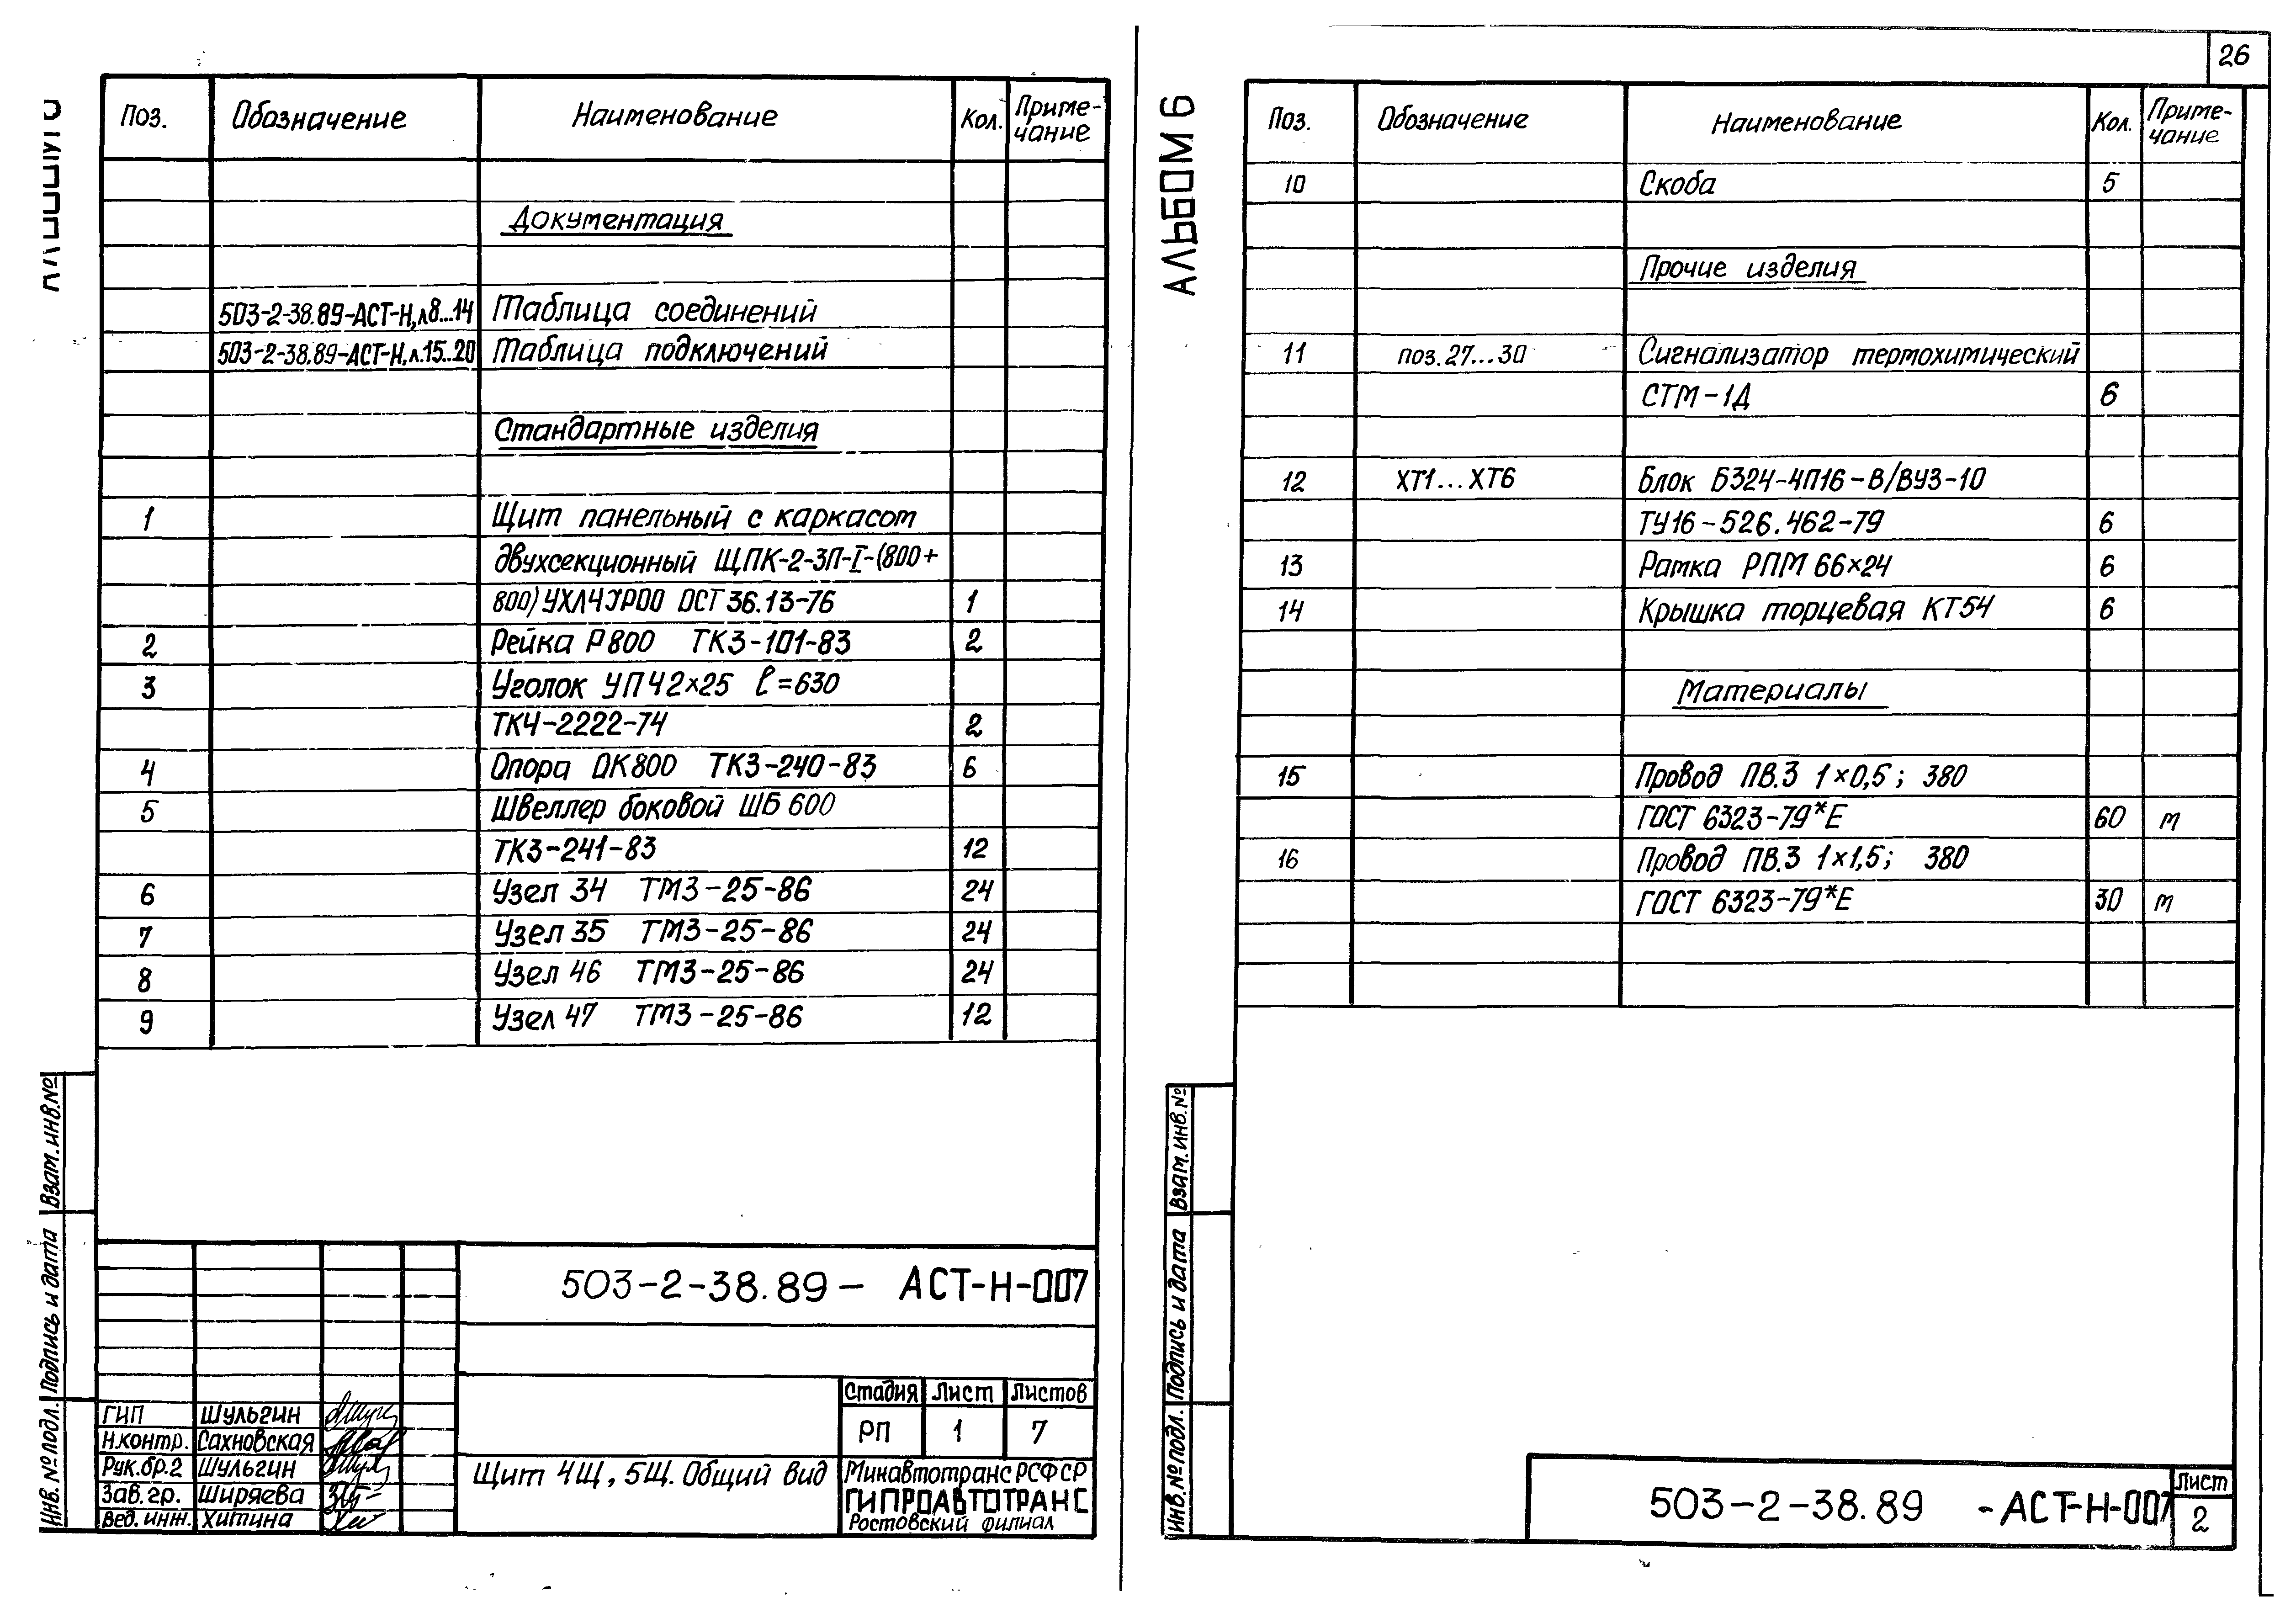 Поз. Обозначение Наименование Кол. Приме-
чание
Документация
503-2-38.89-АСТ-Н, л8...14 Таблица соединений
503-2-38.89-АСТ-Н, л.15..20 Таблица подключений
Стандартные изделия
1 Щит панельный с каркасом
двухсекционный ЩПК-2-ЗП-I-(800+
800) УХЛ4 IР00 ОСТ 36.13-76 1
2 Рейка Р800 ТК3-101-83 2
3 Уголок УП42×25 ℓ=630
ТК4-2222-74 2
4 Опора ОК800 ТК3-240-83 6
5 Швеллер боковой ШБ 600
ТК3-241-83 12
6 Узел 34 ТМ3-25-86 24
7 Узел 35 ТМ3-25-86 24
8 Узел 46 ТМ3-25-86 24
9 Узел 47 ТМ3-25-86 12
Взам. инв. №
Подпись и дата
Инв. № подл.
503-2-38.89- АСТ-Н-007
Стадия Лист Листов
РП 1 7
ГИП Шульгин
Н.контр. Сахновская
Рук.бр.2 Шульгин
Зав. гр. Ширяева
Вед. инж. Хитина
Щит 4Щ, 5Щ. Общий вид
Минавтотранс РСФСР
ГИПРОАВТОТРАНС
Ростовский филиал
26
АЛЬБОМ 6
Поз. Обозначение Наименование Кол. Приме-
чание
10 Скоба 5
Прочие изделия
11 поз.27...30 Сигнализатор термохимический
СТМ-1Д 6
12 ХТ1...ХТ6 Блок Б324-4П16-В/ВУ3-10
ТУ16-526.462-79 6
13 Рамка РПМ 66×24 6
14 Крышка торцевая КТ54 6
Материалы
15 Провод ПВ.3 1×0,5; 380
ГОСТ 6323-79*Е 60 м
16 Провод ПВ.3 1×1,5; 380
ГОСТ 6323-79*Е 30 м
Взам. инв. №
Подпись и дата
Инв. № подл.
503-2-38.89 -АСТ-Н-007
Лист
2